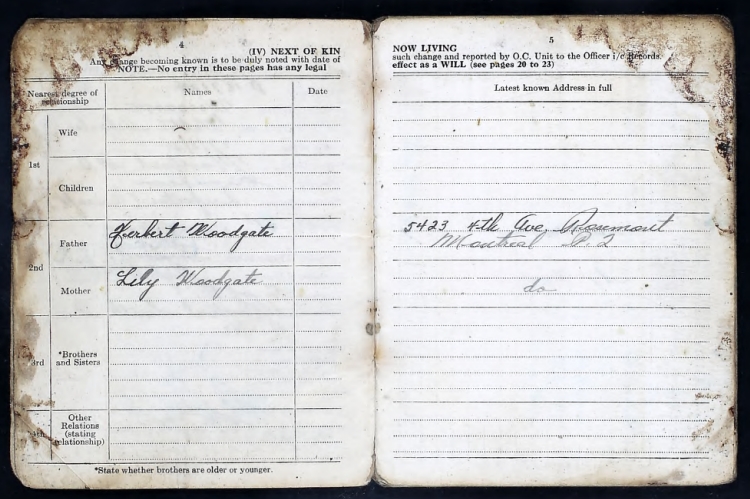 4
(IV) NEXT OF KIN
Any change becoming known is to be duly noted with date of
NOTE.—No entry in these pages has any legal
Nearest degree of
relationship
Names
Date
1st
Wife
Children
2nd
Father
Herbert Woodgate
Mother
Lily Woodgate
3rd
*Brothers
and Sisters
4th
Other
Relations
(stating
relationship)
*State whether brothers are older or younger.
5
NOW LIVING
such change and reported by O.C. Unit to the Officer i/c Records.
effect as a WILL (see pages 20 to 23)
Latest known Address in full
5423 4th Ave, Rosemont
Montreal P.Q
do